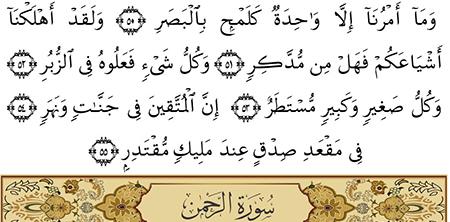 وَمَآ أَمْرُنَآ إِلَّا وَٰحِدَةٌ كَلَمْحٍۭ بِٱلْبَصَرِ ﴿٥٠﴾ وَلَقَدْ أَهْلَكْنَآ
أَشْيَاعَكُمْ فَهَلْ مِن مُّدَّكِرٍ ﴿٥١﴾ وَكُلُّ شَىْءٍ فَعَلُوهُ فِى ٱلزُّبُرِ ﴿٥٢﴾
وَكُلُّ صَغِيرٍ وَكَبِيرٍ مُّسْتَطَرٌ ﴿٥٣﴾ إِنَّ ٱلْمُتَّقِينَ فِى جَنَّٰتٍ وَنَهَرٍ ﴿٥٤﴾
فِى مَقْعَدِ صِدْقٍ عِندَ مَلِيكٍ مُّقْتَدِرٍۭ ﴿٥٥﴾
سُورَةُ الرَّحْمَٰن